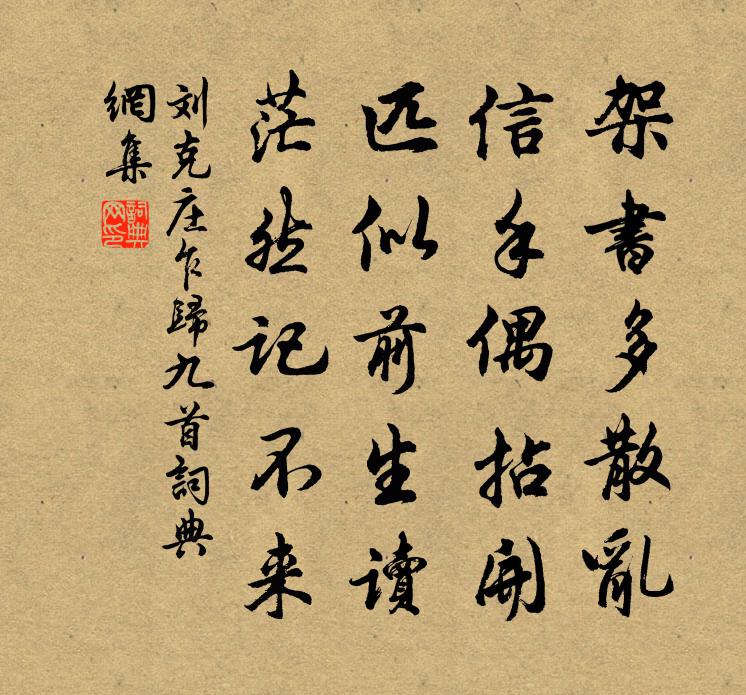 架書多散亂
信手偶拈開
匹似前生讀
茫然记不来
刘克庄乍歸九首詞典
網集
詞典网印